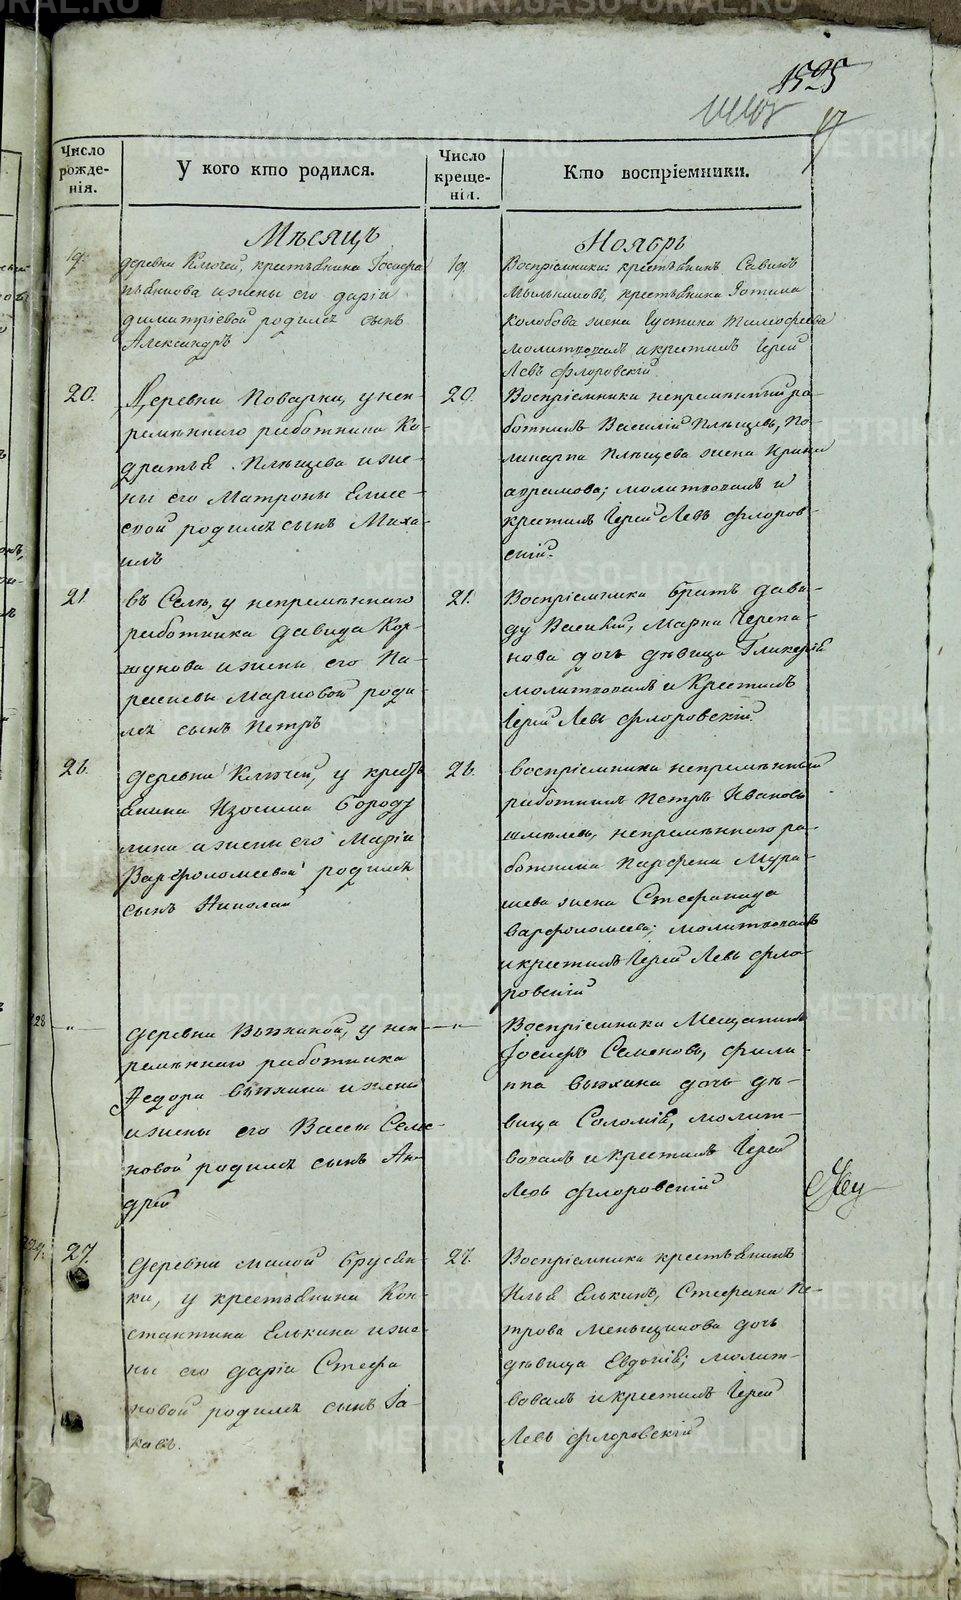 METRIKI.GASO-URAL.RU
1525
17
Число рожденія.
У кого кто родился.
Число крещенія.
Кто воспріемники.
Мѣсяцъ
Ноябрь
19.
деревни Ключей, крестьянина Іосифа
и жены его Даріи
Димитріевой родился сынъ
Александръ
19.
Воспріемники: крестьянинъ Савинъ
крестьянина Фотина
Колобова жена Устина Тимофеева
молитвовалъ и крестилъ Іерей
Левъ Флоровскій
20.
Деревни Поварни, у неп-
ремѣннаго работника Ко-
дратья Плѣщева и же-
ны его Матроны Елисе-
евой родился сынъ Миха-
илъ
20.
Воспріемники непремѣнный ра-
ботникъ Василій Плѣщевъ, По-
ликарпа Плѣщева жена Ирина
аврамова; молитвовалъ и
крестилъ Іерей Левъ Флоров-
скій.
21.
въ Селѣ, у непремѣннаго
работника Давида Кор-
жукова и жены его Па-
раскевы Марковой роди-
лся сынъ Петръ
21.
Воспріемники братъ Дави-
ду Василій, Марка Черепа-
нова дочь дѣвица Гликерія
молитвовалъ и Крестилъ
Іерей Левъ Флоровскій
26.
деревни Ключей, у кресть
янина Изосима Бороду
лина и жены его Маріи
Варфоломеевой родился
сынъ Николай
26.
воспріемники непремѣнный
работникъ Петръ Ивановъ
Шмелевъ, непремѣннаго ра-
ботника Парфена Мура-
шева жена Стефанида
варфоломеева; молитвовалъ
и крестилъ Іерей Левъ Фло-
ровскій
128
— " —
деревни Вяткиной, у неп-
ремѣннаго работника
Федора Вяткина и жены
и жены его Вассы Семе-
новой родился сынъ Ан-
дрей
— " —
Воспріемники Мещанинъ
Іосифъ Семеновъ, Фили-
ппа Вяткина дочь дѣ-
вица Соломія, молит-
вовалъ и крестилъ Іерей
Левъ Флоровскій
27.
деревни малой Брусян-
ки, у крестьянина Кон-
стантина Елькина и же-
ны его Даріи Стефа
новой родился сынъ Іа-
ковъ.
27.
Воспріемники крестьянинъ
Илья Елькинъ, Стефана Пе-
трова Меньщикова дочь
дѣвица Евдокія; молит-
вовалъ и крестилъ Іерей
Левъ Флоровскій